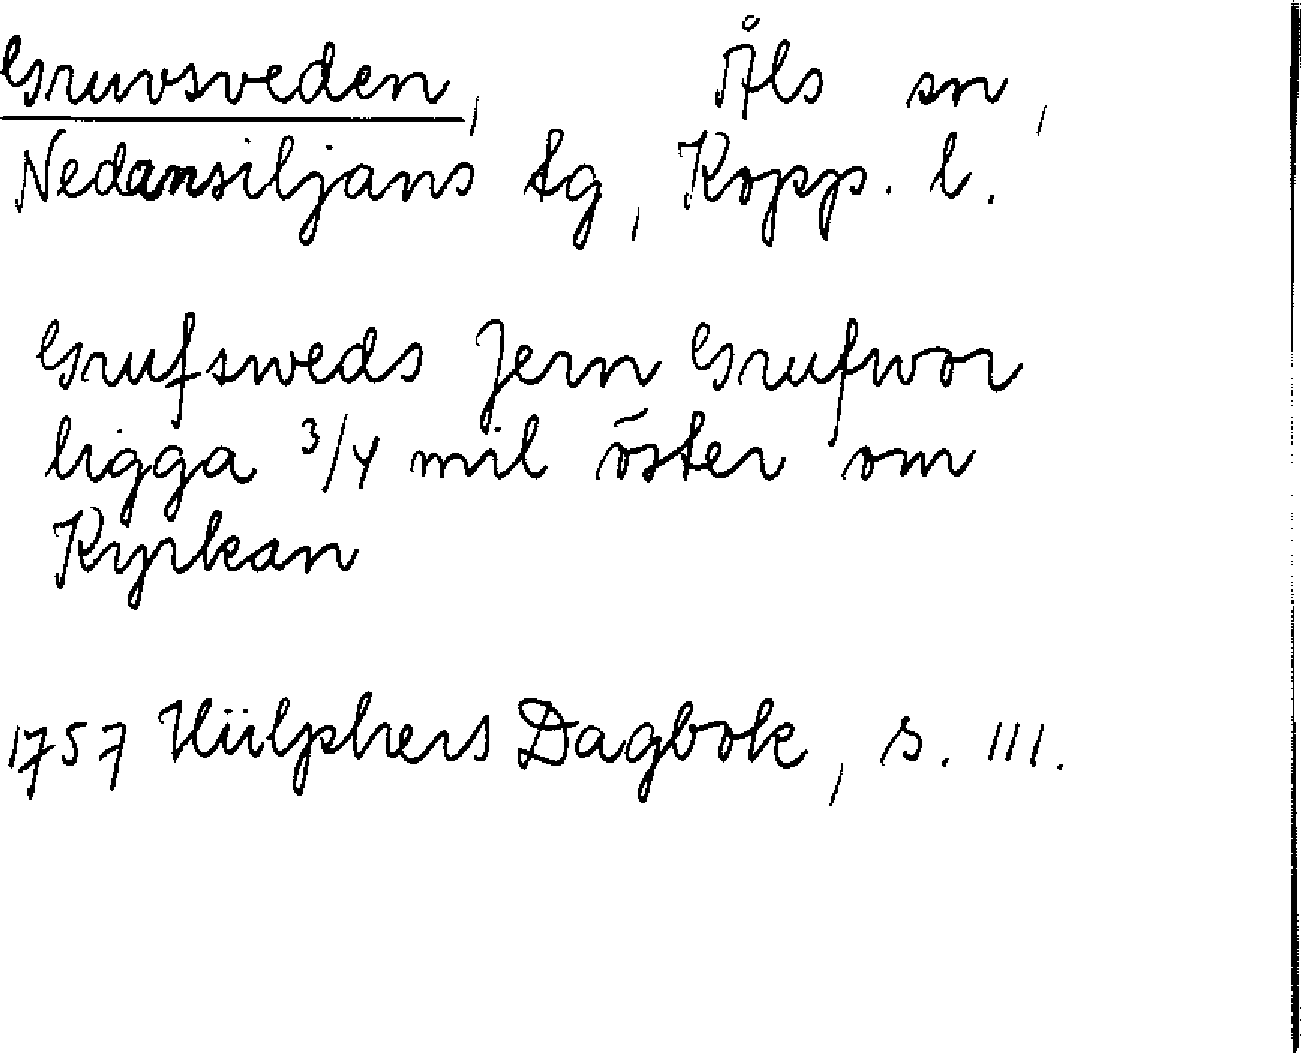 Gruvsveden, Åls sn,
Nedansiljans tg, Kopp. l.
Grufsweds Jern Grufwor
ligga 3/4 mil öster om
Kyrkan
1757 Hülphers Dagbok, s. 111.